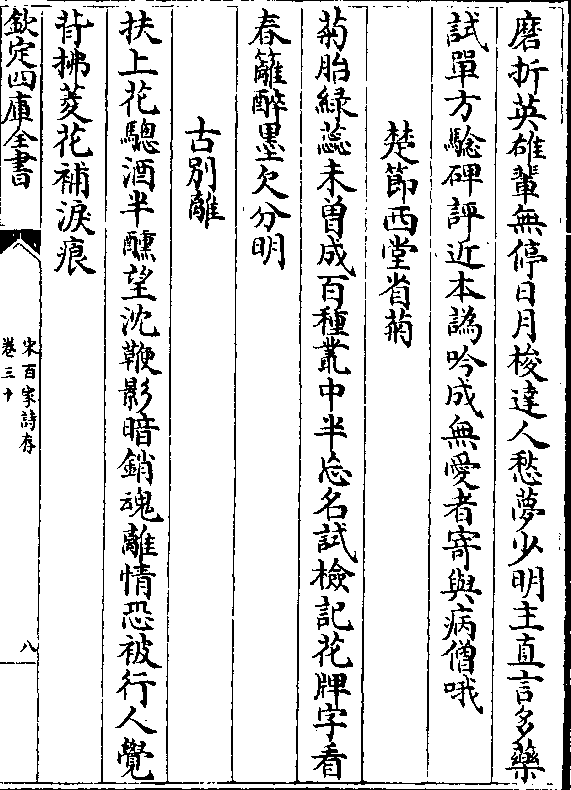 磨折英雄輩無停日月梭達人愁夢少明主直言多藥
試單方驗碑評近本譌吟成無愛者寄與病僧哦
楚節西堂省菊
菊胎綠蕊未曽成百種叢中半忘名試檢記花牌字看
春籬醉墨欠分明
古別離
扶上花驄酒半醺望沈鞭影暗銷魂離情恐被行人覺
背拂菱花補淚痕
欽定四庫全書
宋百家詩存
卷三十
八